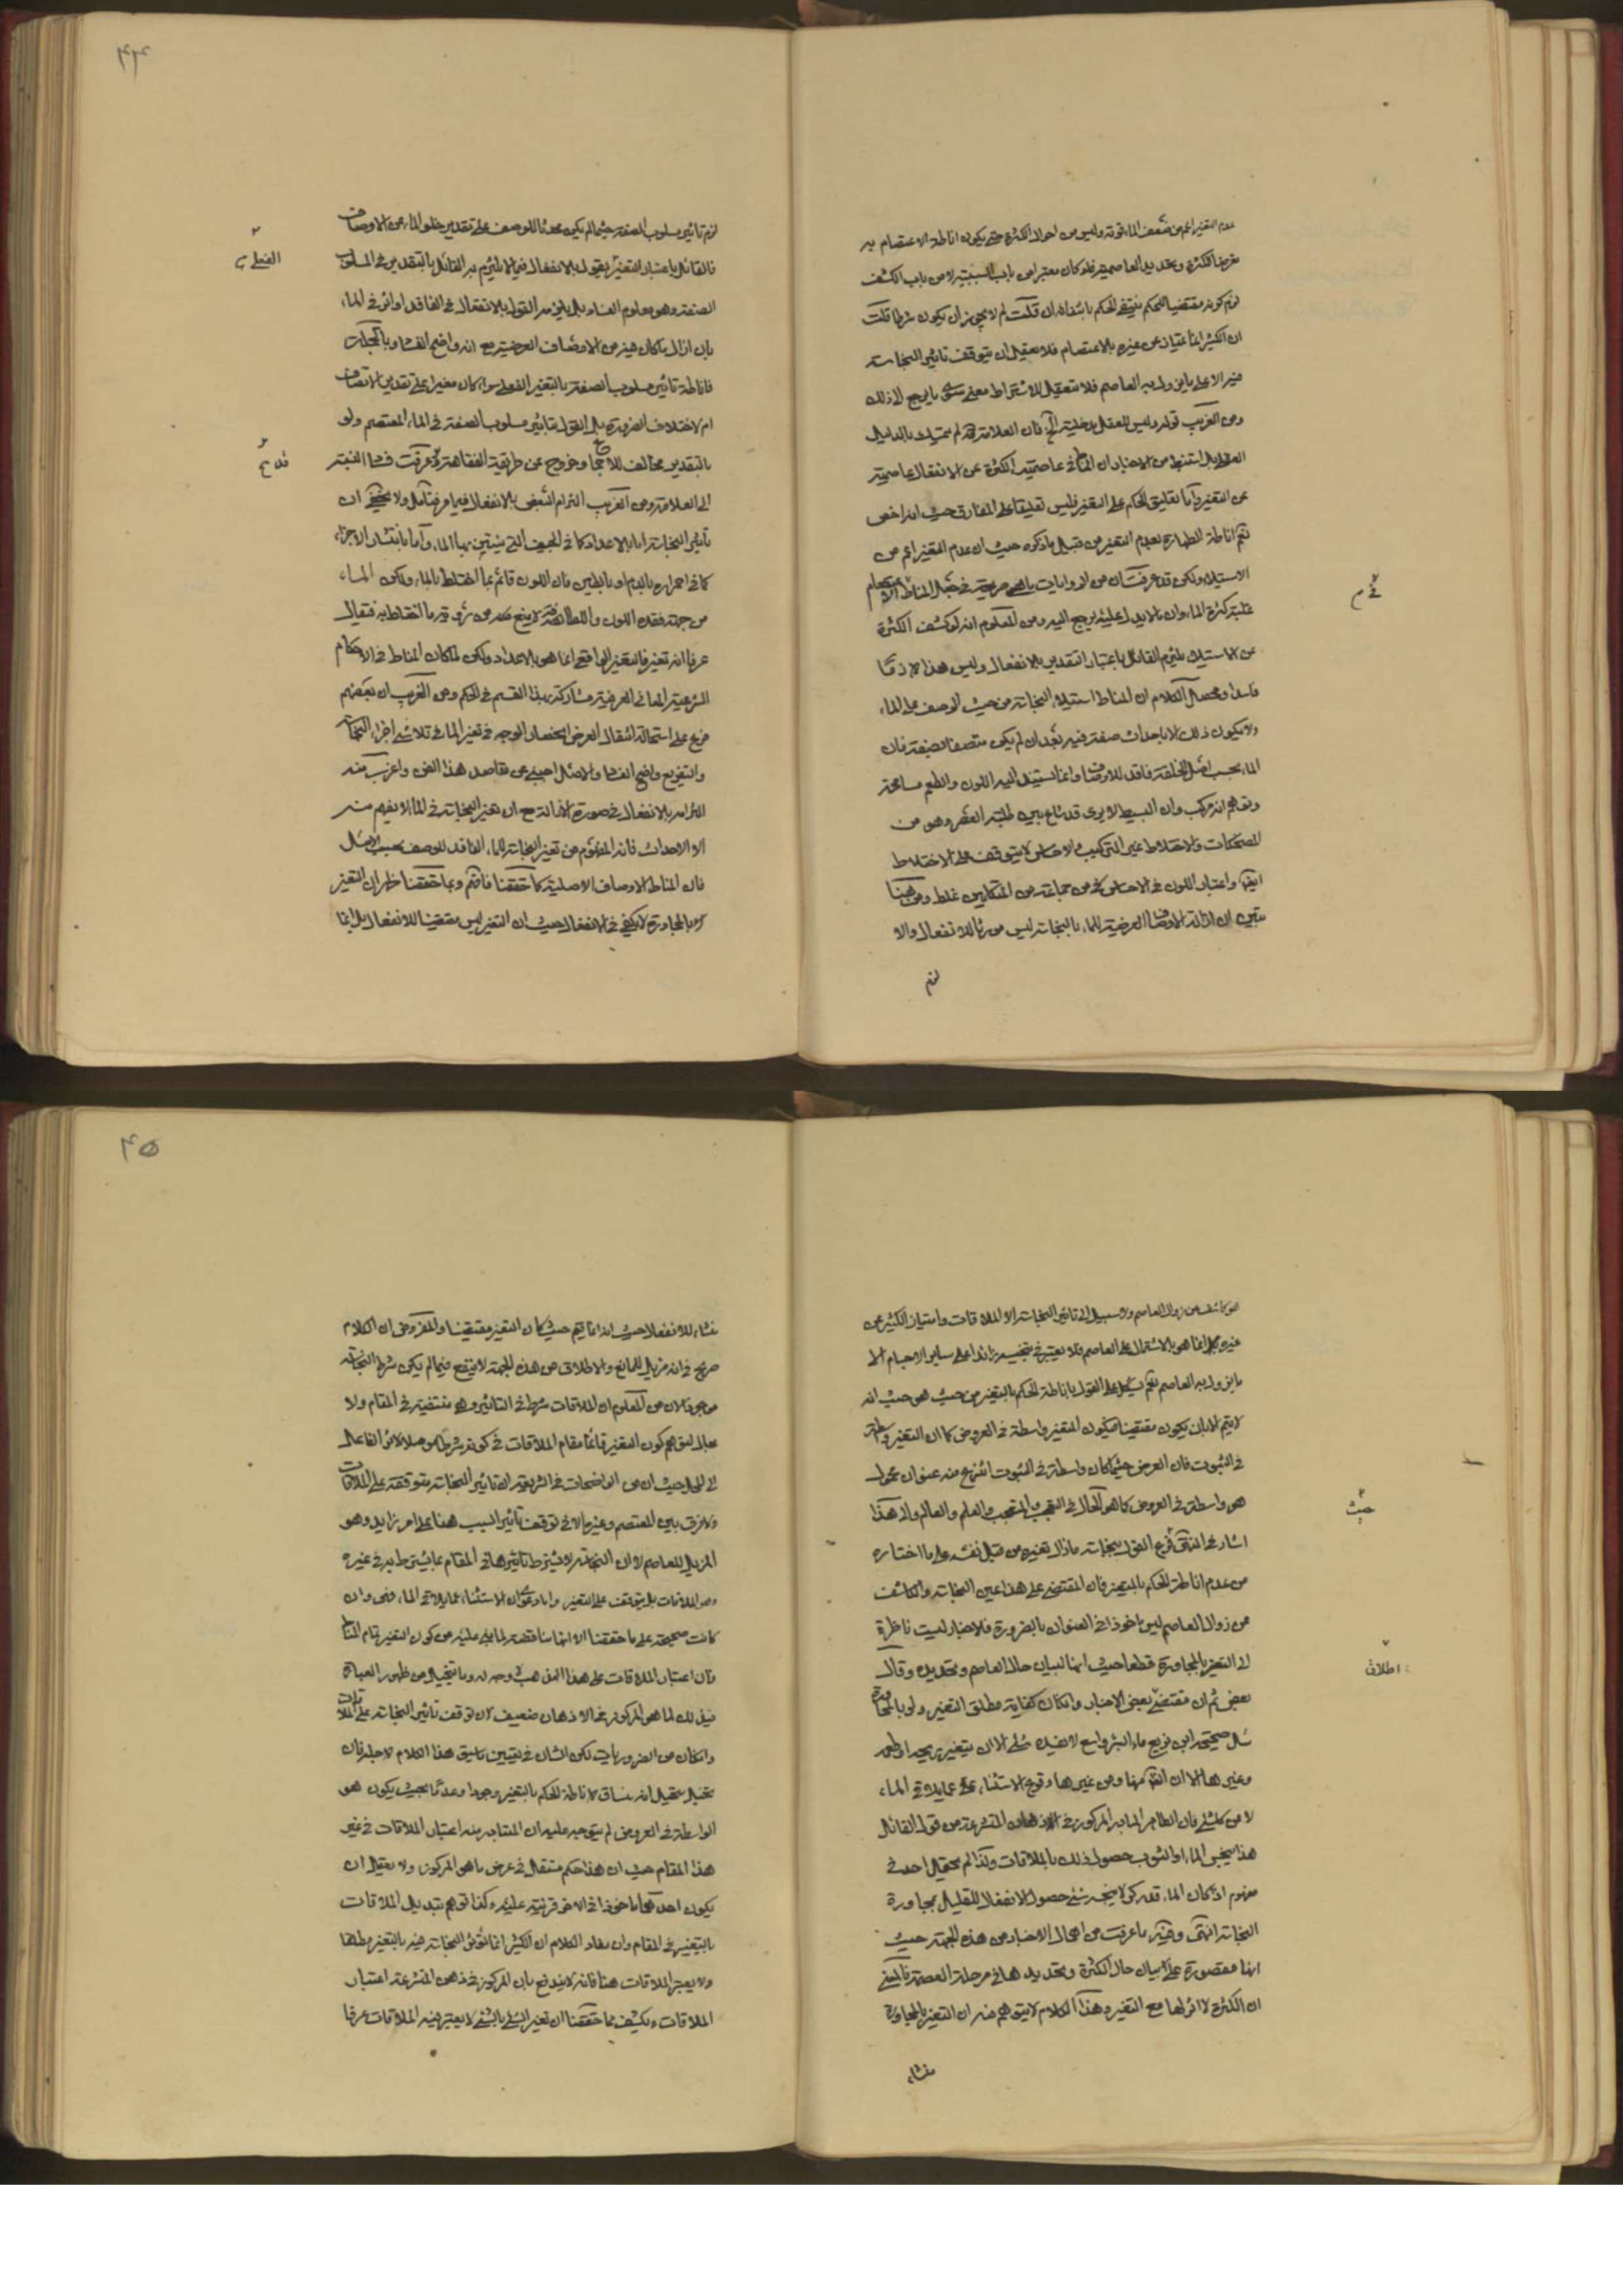 عدم التغير اعم من ضعف الماء قوته وليس من احوال الكثرة حتى يكون اناطة الاعتصام به
لزم كونه مقتضيا للحكم فينتفى الحكم بانتفائه ان قلت لم لا يجوز ان يكون شرطا قلت
ان الكثير انما يمتاز عن غيره بالاعتصام فلا يعقل ان يتوقف تاثير النجاسة
فيه الا على ما يزول به العاصم فلا يتعقل للاشتراط معنى سوى ما يرجع الى ذلك
ومن الغريب قوله وليس للعقل مدخلية الخ فان العلامة قده لم يتمسك بالدليل
العقلى بل استنبط من الاخبار ان المناط فى عاصمية الكثرة عن الانفعال عاصميته
عن التغير واما تعليق الحكم على التغير فليس تعليقا على المفارق حيث انه اخص
نعم اناطة الطهارة بعدم التغير من قبيل ما ذكره حيث ان عدم التغير اعم من
الاستيلاء ولكن قد عرفت ان من الروايات ما هى صريحة فى جعل المناط
غلبة كثرة الماء وان ما لا يدل عليه يرجع اليه ومن المعلوم انه لو كشف الكثرة
عن الاستيلاء يلتزم القائل باعتبار التقدير بالانفعال وليس هذا الازما
فاسدا ومحصل الكلام ان المناط استيلاء النجاسة من حيث الوصف على الماء
ولا يكون ذلك الا باحداث صفة فيه بعد ان لم يكن متصفا بصفة فان
الماء بحسب اصل الخلقة فاقد للاوصاف وانما يستند اليه اللون والطعم مسامحة
وتوهم انه مركب وان البسيط لا يرى قد شاع بين طلبة العصر وهو من
المضحكات والاختلاط غير التركيب والاحساس لا يتوقف على الاختلاط
ايضا واعتبار اللون فى الاحساس كما عن جماعة من المتكلمين غلط ومن هنا
تبين ان ازالة الاوصاف العرضية للماء بالنجاسة ليس مورثا للانفعال والا
لزم
فى م
٤٤
لزم تاثير مسلوب الصفة حيثما لم يكن محدثا للوصف على تقدير خلو الماء عن الاوصاف
فالقائل باعتبار التغير يقول بالانفعال فيما لا يلتزم به القائل بالتقدير فى المسلوب
الصفة وهو معلوم الفساد بل يلزمه القول بالانفعال فى الفاقد لو اثر فى الماء
بان ازال ما كان فيه من الاوصاف العرضية مع انه واضح الفساد وبالجملة
فاناطة تاثير مسلوب الصفة بالتغير الفعلى سواء كان مغيرا على تقدير الاتصاف
ام لا خلاف الضرورة بل القول بتاثير مسلوب الصفة فى الماء المعتصم ولو
بالتقدير مخالف للاجماع وخروج عن طريقة الفقاهة وقد عرفت فساد النسبة
الى العلامة ومن الغريب التزام البعض بالانفعال فيما مر فتامل ولا يخفى ان
تاثير النجاسة اما بالاعداد كما فى الجيف التى ينتن بها الماء واما بانتشار الاجزاء
كما فى احمراره بالدم او بالطين فان اللون قائم بما اختلط بالماء ولكن الماء
من جهة فقده اللون واللطافة لا يمنع عن رؤية ما اختلط به فيقال
عرفا انه تغير فالتغير الواقعى انما هو بالاعداد ولكن لما كان المناط فى الاحكام
الشرعية المعانى العرفية شاركه هذا القسم فى الحكم ومن الغريب ان بعضهم
فرع على استحالة انتقال العرض انحصار الوجه فى تغير الماء فى تلاشى اجزاء النجاسة
والتفريع واضح الفساد والاصل اجنبى عن مقاصد هذا الفن واغرب منه
التزامه بالانفعال فى صورة الازالة مع ان تغير النجاسة فى الماء لا يفهم منه
الا الاحداث فانه المفهوم من تغير النجاسة للماء الفاقد للوصف بحسب الاصل
فان المناط الاوصاف الاصلية كما حققنا فافهم ومما حققنا ظهر ان التغير
بالمجاورة لا يكفى فى الانفعال حيث ان التغير ليس مقتضيا للانفعال بل انما
الفعلى
هو كاشف عن زوال العاصم ولا سبيل الى تاثير النجاسة الا الملاقات وامتياز الكثير عن
غيره انما هو بالاشتمال على العاصم فلا يعتبر فى تنجيسه زائدا على ساير الاجسام الا
ما يزول به العاصم نعم يشكل على القول باناطة الحكم بالتغير من حيث هو حيث انه
لا يتم الا بان يكون مقتضيا فيكون التغير واسطة فى العروض كما ان التغير واسطة
فى الثبوت فان العرض حيثما كان واسطة فى الثبوت انتزع منه عنوان محمول
هو واسطة فى العروض كما هو الحال فى التعجب والمتعجب والعلم والعالم والى هذا
اشار فى المنتهى فرع الفول بنجاسة ما زال تغيره من قبل نفسه على ما اختاره
من عدم اناطة الحكم بالتغير فان المقتضى على هذا عين النجاسة والكاشف
عن زوال العاصم ليس ماخوذا فى العنوان بالضرورة فالاخبار ليست ناظرة
الى التغير بالمجاورة قطعا حيث انها لبيان حال العاصم وتحديده وقال
بعض ثم ان مقتضى بعض الاخبار وان كان كفاية مطلق التغير ولو بالمجاورة
مثل صحيحة ابن بزيع ماء البئر واسع لا يفسده شىء الا ان يتغير ريحه او طعمه
وغيرها الا ان الظاهر منها ومن غيرها وقوع الاستثناء على ما يلاقى الماء
لا من كل شىء فان الظاهر المتبادر المركوز فى اذهان المتشرعة من قول القائل
هذا ينجس الماء او الثوب حصول ذلك بالملاقات ولذا لم يحتمل احد فى
مفهوم اذا كان الماء قدر كر لا ينجسه شىء حصول الانفعال للقليل بمجاورة
النجاسة انتهى وفيه ما عرفت من اهمال الاخبار من هذه الجهة حيث
انها مقصورة على بيان حال الكثرة وتحديدها فى مرحلة العصمة
ان الكثرة لا اثر لها مع التغير وهذا الكلام لا يتوهم منه ان التغير بالمجاورة
منشاء
حيث
اطلاق
٤٥
منشاء للانفعال حيث انه انما يتم حيث كان التغير مقتضيا والمفروض ان الكلام
صريح فى انه مزيل للمانع والاطلاق من هذه الجهة لا ينفع فيما لم يكن شرط النجاسة
موجودا لان من المعلوم ان الملاقات شرط فى التاثير وهى منتفية فى المقام ولا
مجال لتوهم كون التغير قائما مقام الملاقات فى كونه شرطا موصلا لاثر الفاعل
الى المحل حيث ان من الواضحات فى الشريعة ان تاثير النجاسة متوقفة على الملاقات
ولا فرق بين المعتصم وغيره الا فى توقف تاثير السبب هنا على امر زايد وهو
المزيل للعاصم لا ان النجاسة لا يشترط تاثيرها فى المقام بما يشترط به فى غيره
من الملاقات بل يتوقف على التغير واما دعوى ان الاستثناء عما يلاقى الماء فهى وان
كانت صحيحة على ما حققنا الا انها مناقضة لما بنى عليه من كون التغير تمام المناط
فان اعتبار الملاقات على هذا المذهب لا وجه له وما يتخيل من ظهور العبارة
فى ذلك لما هو المركوز فى الاذهان ضعيف لان توقف تاثير النجاسة على الملاقات
وان كان من الضروريات لكن الشان فى تعيين ما سيق هذا الكلام لاجله فان
تخيل متخيل انه مساق لاناطة الحكم بالتغير وجودا وعدما بحيث يكون هو
الواسطة فى العروض لم يتوجه عليه ان المتبادر منه اعتبار الملاقات فى غير
هذا المقام حيث ان هذا حكم مستقل فى عرض ما هو المركوز ولا يعقل ان
يكون احدهما ماخوذا فى الاخر قرينة عليه وكذا توهم تبديل الملاقات
بالتغير فى المقام وان مفاد الكلام ان الكثير انما تؤثر النجاسة فيه بالتغير مطلقا
ولا يعتبر الملاقات هنا فانه لا يندفع بان المركوز فى ذهن المتشرعة اعتبار
الملاقات ويكشف عما حققنا ان تغير الشىء بالشىء لا يعتبر فيه الملاقات عرفا